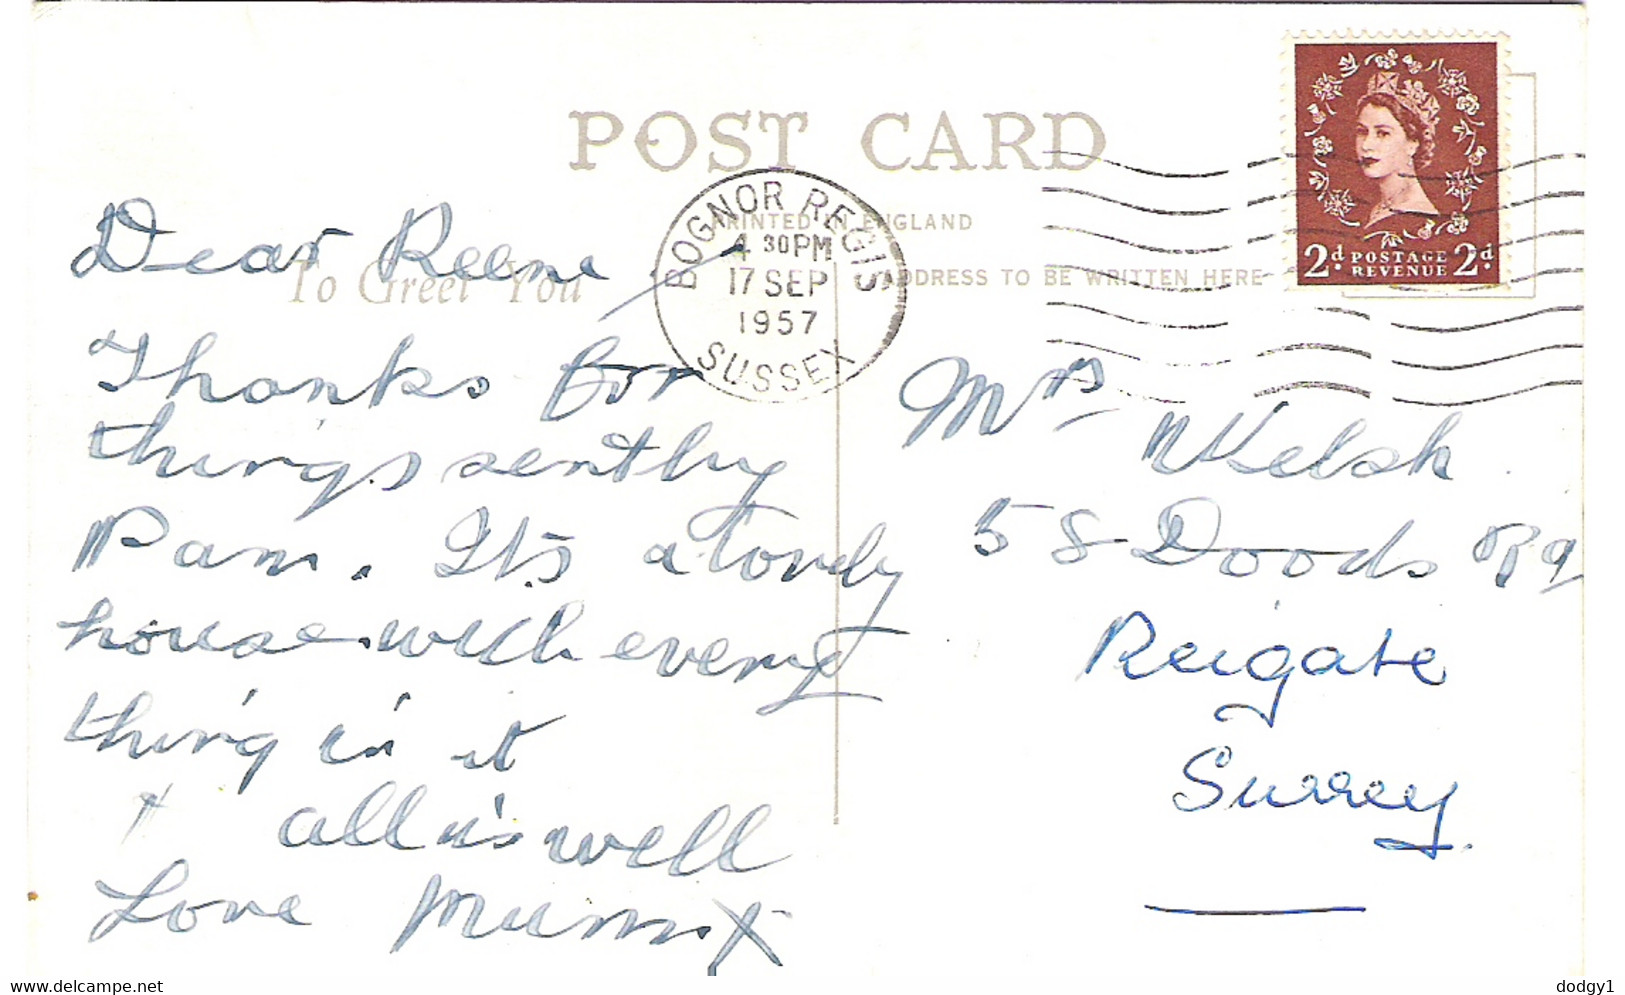 POST CARD
PRINTED IN ENGLAND
To Greet You
ADDRESS TO BE WRITTEN HERE
BOGNOR REGIS
4 30PM
17 SEP
1957
SUSSEX
2d. POSTAGE REVENUE 2d.
Dear Reene
Thanks for
things sent by
Pam. It's a lovely
house with every
thing in it
all is well
Love Mum X
Mrs Welsh
58 Doods Rd
Reigate
Surrey.
www.delcampe.net
dodgy1